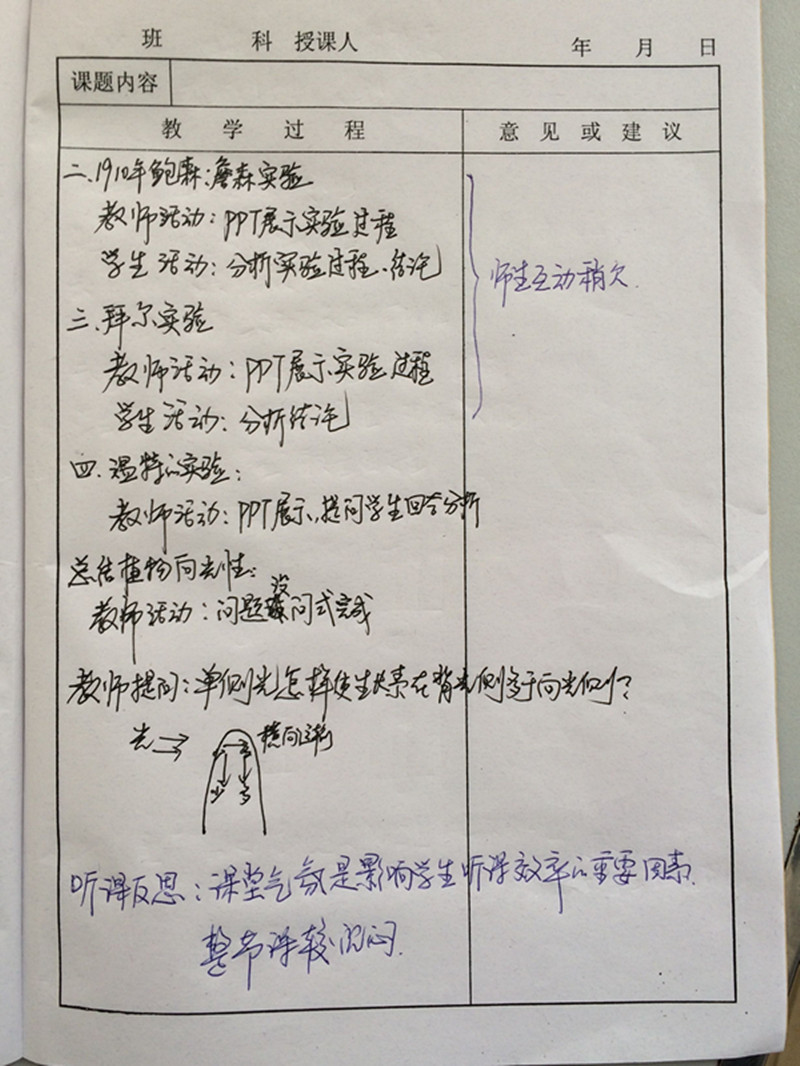 班 科 授课人 年 月 日
课题内容
教 学 过 程 意 见 或 建 议
二.1910年鲍森:詹森实验
教师活动:PPT展示实验过程
学生活动:分析实验过程、结论
师生互动稍欠.
三.拜尔实验
教师活动:PPT展示实验过程
学生活动:分析结论
四.温特的实验:
教师活动:PPT展示,提问学生回答分析
总结植物向光性:
教师活动:问题设问式完成
教师提问:单侧光怎样使生长素在背光侧多于向光侧?
光 横向运输
少 多
听课反思:课堂气氛是影响学生听课效率的重要因素.
整节课较沉闷.